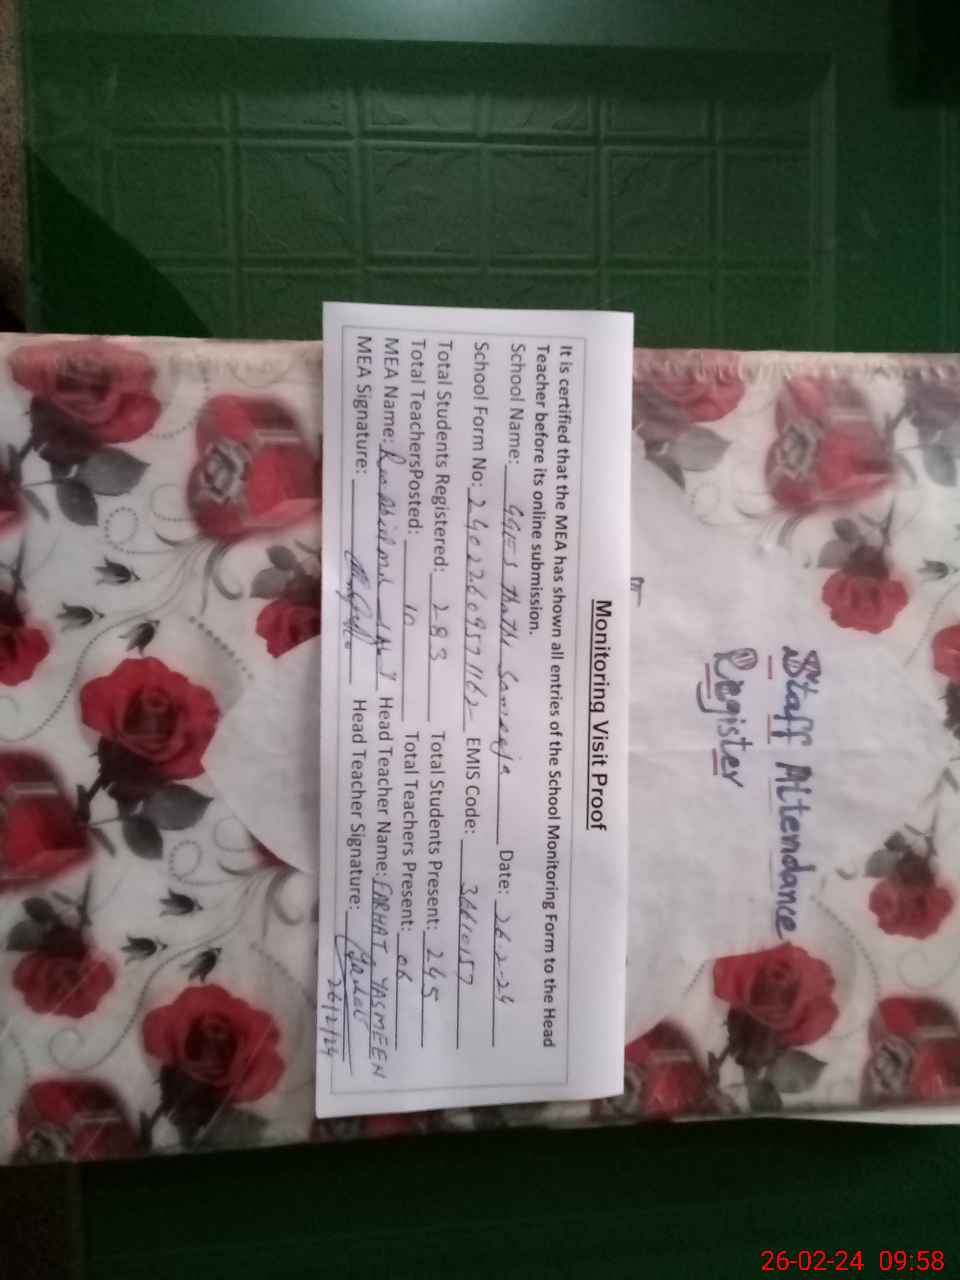 Staff Attendance
Register
Monitoring Visit Proof
It is certified that the MEA has shown all entries of the School Monitoring Form to the Head
Teacher before its online submission.
School Name: GGES Date: 26-2-24
School Form No: EMIS Code:
Total Students Registered: 283 Total Students Present: 245
Total TeachersPosted: 10 Total Teachers Present: 06
MEA Name: Head Teacher Name: FARHAT YASMEEN
MEA Signature: Head Teacher Signature:
26/2/24
26-02-24 09:58